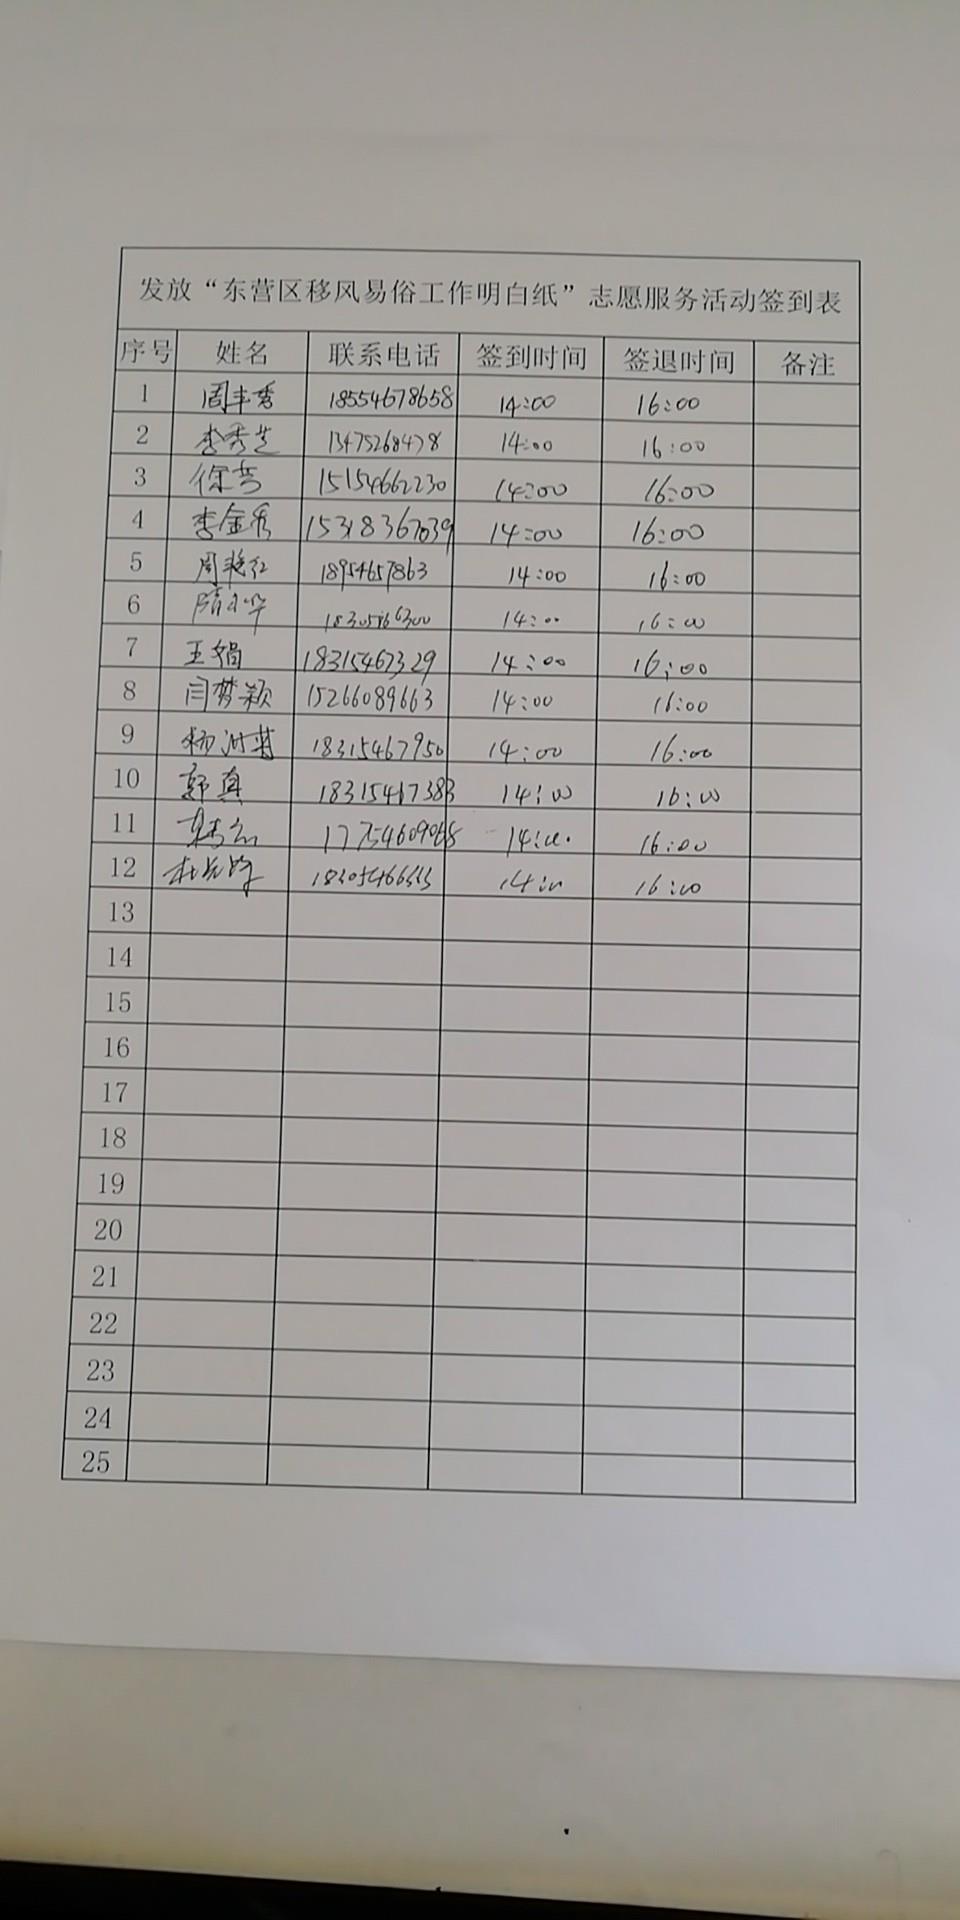 发放“东营区移风易俗工作明白纸”志愿服务活动签到表
序号 姓名 联系电话 签到时间 签退时间 备注
1 周丰秀 18554678658 14:00 16:00
2 李秀芝 13475268478 14:00 16:00
3 徐 15154662230 14:00 16:00
4 李金秀 15318367039 14:00 16:00
5 周艳红 18954657863 14:00 16:00
6 隋小华 14:00 16:00
7 王娟 18315467329 14:00 16:00
8 闫梦颖 15266089663 14:00 16:00
9 杨 18315467950 14:00 16:00
10 郭真 18315467383 14:00 16:00
11 14:00 16:00
12 杜 14:00 16:00
13
14
15
16
17
18
19
20
21
22
23
24
25